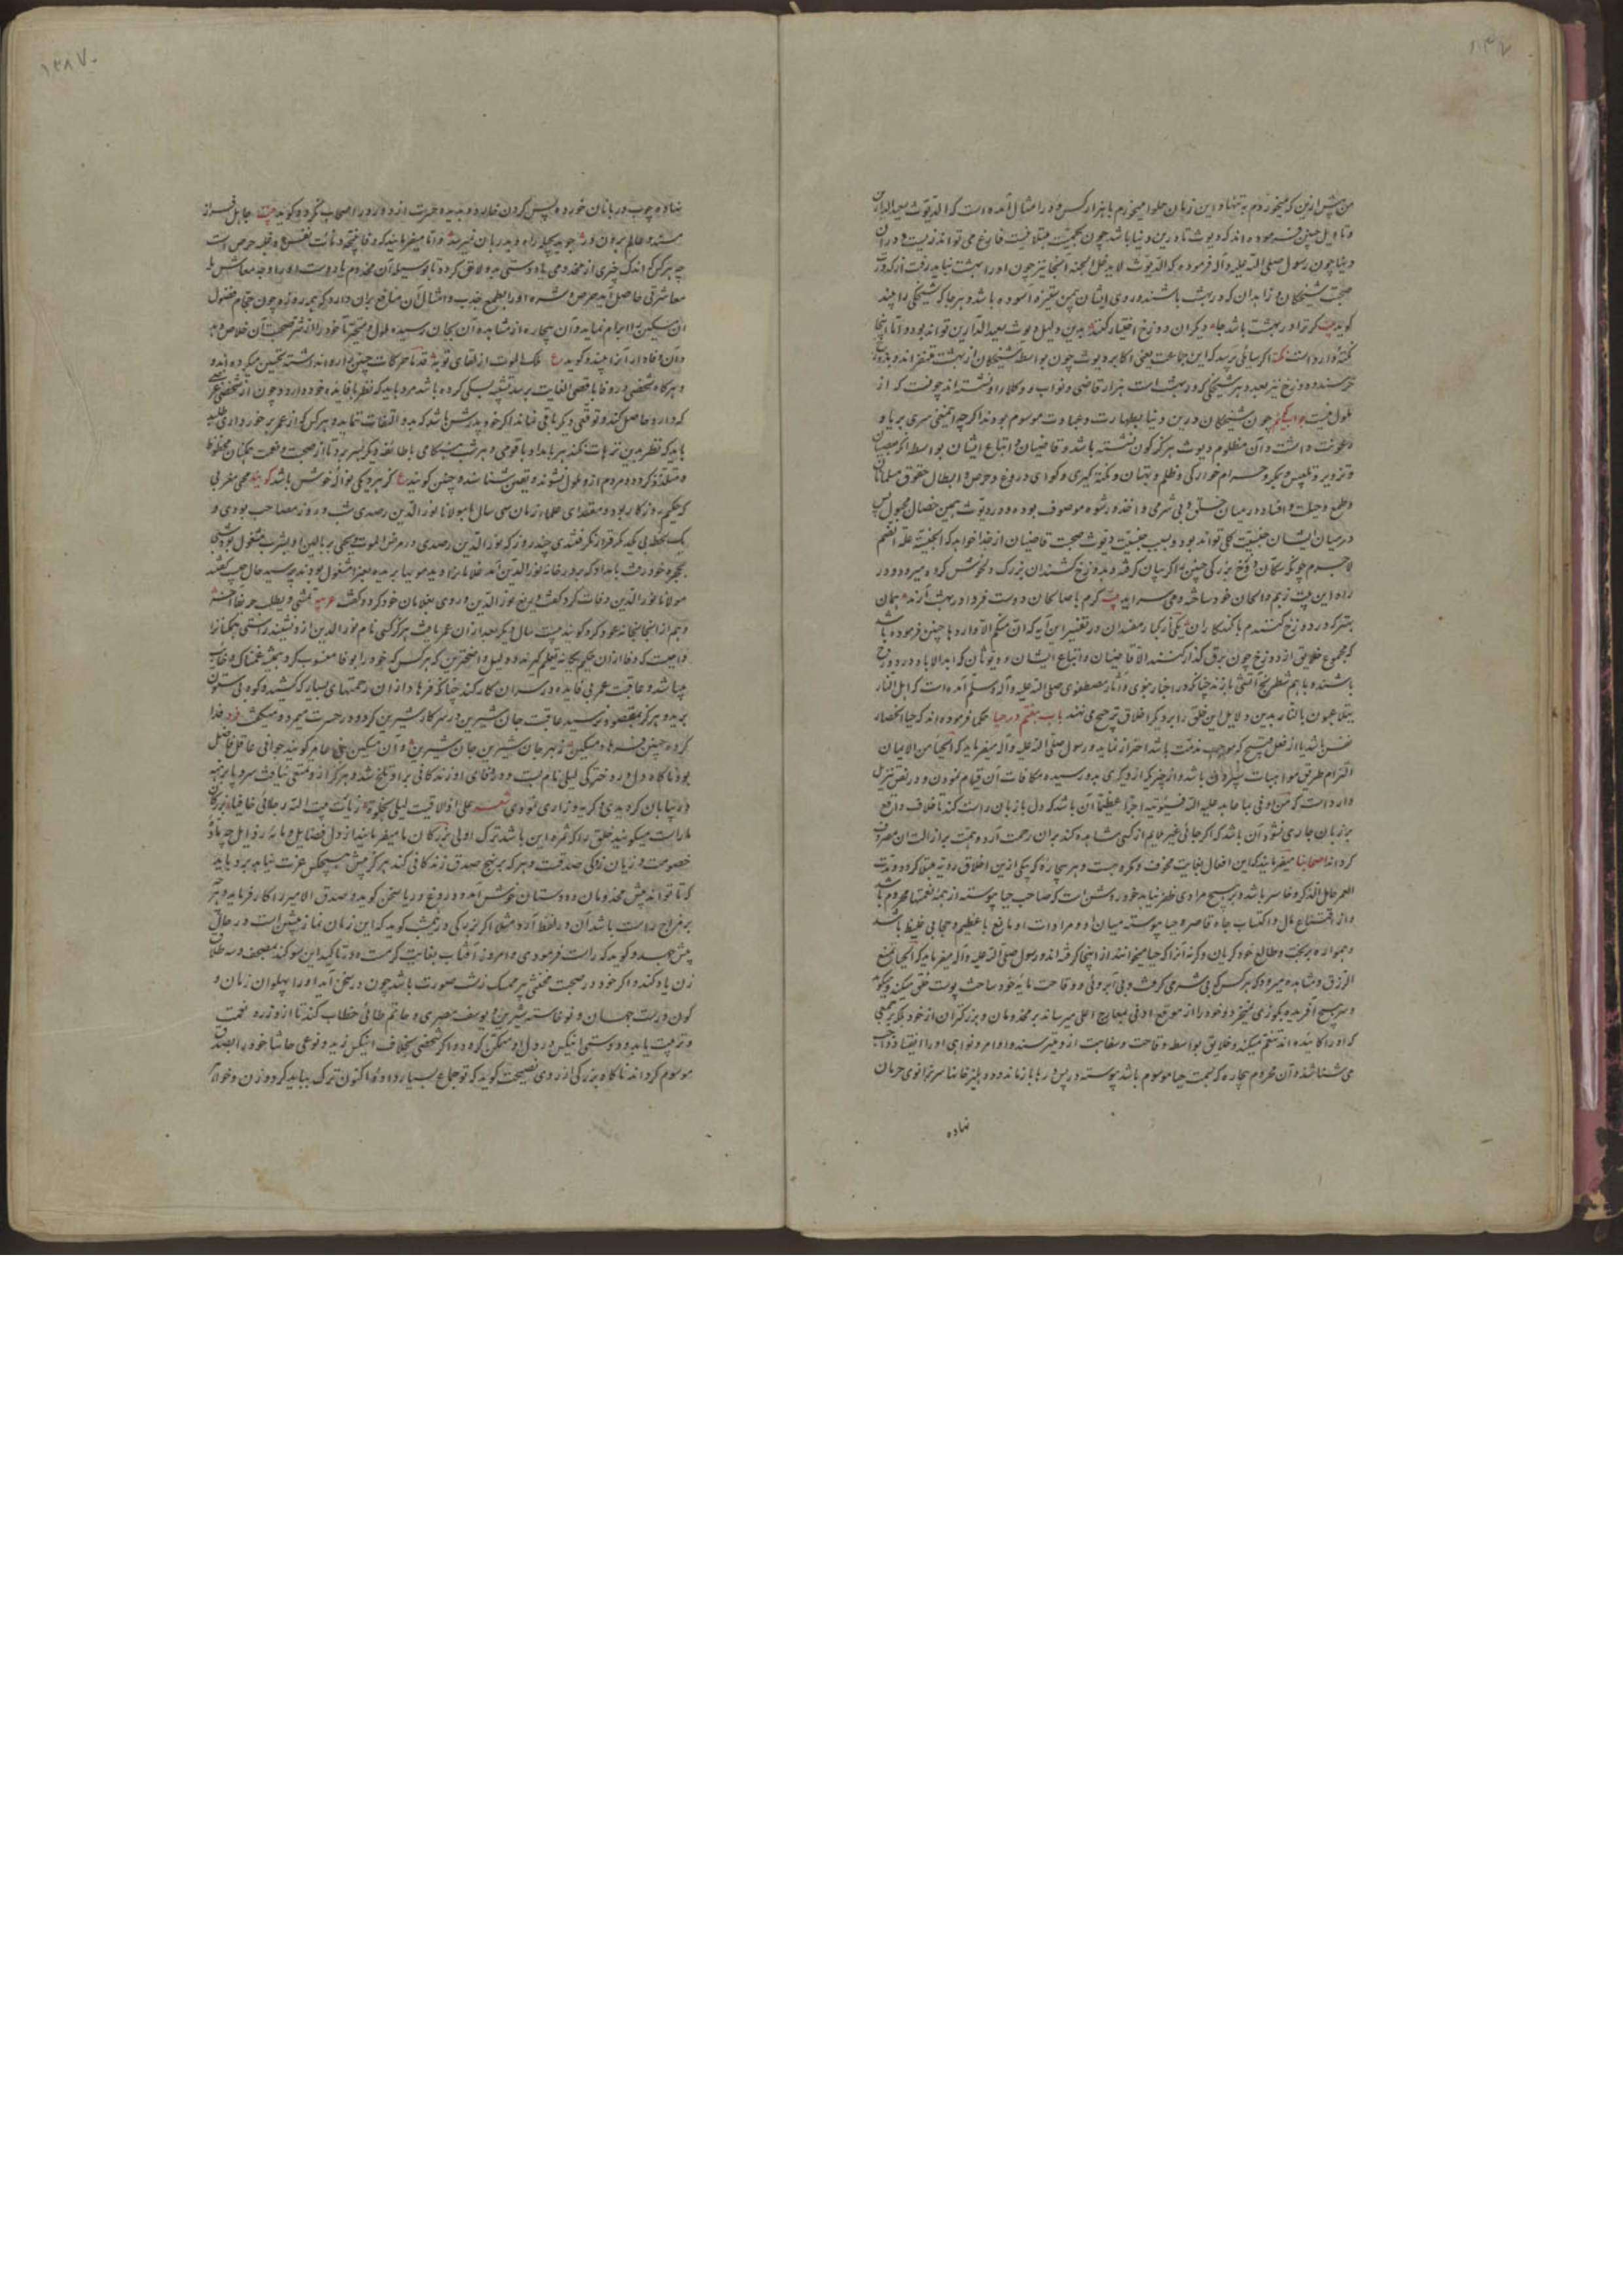 من پیش ازین که میخوردم به تنها و این زمان حلوا میخورم با هزار کس و در امثال آمده است که الدیوث سعید الدارین
و تاویل چنین فرموده‌اند که دیوث تا درین دنیا باشد چون بحمیت مبتلا نیست فارغ می‌تواند زیست و در آن
دنیا چون رسول صلی الله علیه و آله فرموده که الدیوث لا یدخل الجنة آنجا نیز چون او را بهشت نباید رفت از کدورت
صحبت شیخکان و زاهدان که در بهشت باشند و روی ایشان آسوده باشد و هر جا که شیخکی را بیند
گوید بیت گر ترا در بهشت باشد جای دیگران دوزخ اختیار کنند بدین دلیل دیوث سعید الدارین تواند بود و اما اینجا
نکته وارد است نکته اگر سائلی پرسد که این جماعت یعنی اکابر دیوث چون بواسطه شیخکان از بهشت متنفرند
در دوزخ نیز بعدد هر شیخکی که در بهشت است هزار قاضی و نواب و وکلا او نشسته‌اند چونست که از
ملول نیست جواب گوئیم چون شیخکان درین دنیا بطهارت و عبادت موسوم بودند اگر چه آن معنی سری بریا و
رعونت داشت و آن مظلوم دیوث هرگز کون نشسته باشد و قاضیان و اتباع ایشان بواسطه آنکه بعصیان
و تزویر و تلبیس و مکر و حرام خوارگی و ظلم و بهتان و نکته گیری و گواهی دروغ و حرص و ابطال حقوق مسلمانان
و طمع و حیلت و افساد در میان خلق و بی شرمی و اخذ رشوه موصوف بوده و در دیوث همین خصال مجبول پس
در میان ایشان جنسیت کلی تواند بود و بسبب جنسیت دیوث صحبت قاضیان از خدا خواهد که الجنسیة علة الضم
لاجرم چون
راه این بیت ترنم و الحان خود ساخته و می سراید بیت گرم با صالحان دوست فردا در بهشت آرند همان
بهتر که در دوزخ کنندم با گنه‌کاران یکی از کبار مفسران در تفسیر این آیه که ان منکم الا واردها چنین فرموده باشد
که مجموع خلایق از دوزخ چون برق گذار کنند الا قاضیان و اتباع ایشان و دیوثان که ابد الاباد در دوزخ
باشند و با هم شطرنج آتشی بازند چنانکه در اخبار نبوی و آثار مصطفوی صلی الله علیه و آله و سلم آمده است که اهل النار
یتلاعبون بالنار بدین دلایل این خلق را بر دیگر اخلاق ترجیح می نهند باب هفتم در حیا حکما فرموده‌اند که حیا انحصار
نفس باشد تا از فعل قبیح که موجب مذمت باشد احتراز نماید و رسول صلی الله علیه و آله میفرماید که الحیا من الایمان
التزام طریق باشد و از چیزی که از دیگری بدو رسیده مکافات آن قیام نمودن و در نص تنزیل
وارد است که من اوفی بما عاهد علیه الله فسیؤتیه اجرا عظیما آن باشد که دل با زبان راست کند تا خلاف واقع
بر زبان جاری نشود آن باشد که اگر حالتی غیر ملایم از کسی مشاهده کند بر آن رحمت آرد و همت بر ازالت آن مصروف
گرداند اصحابنا میفرمایند که این افعال بغایت مخوف و مکروهست و هر بیچاره که بیکی ازین اخلاق ردیه مبتلا گردد مدت
العمر خامل الذکر و خاسر باشد و بر هیچ مرادی ظفر نیابد خود روشن است که صاحب حیا پیوسته از همه نعمتها محروم باشد
و از اقتناع مال و اکتساب جاه قاصره حیا پیوسته میان او و مرادات او مانع عظیم و حجابی غلیظ باشد
و همواره بر بخت و طالع خود گریان و گریه آن را که حیا میخوانند از اینجا گرفته‌اند و رسول صلی الله علیه و آله میفرماید که الحیا یمنع
الرزق و مشاهده میرود که هر کس که بی شرمی و بی آبروئی و وقاحت مایه خود ساخت پوست خلق میکند و
و سر بهیچ آفریده بگوزی نمیخرد و خود را از موقع ادنی بمعارج اعلی میرساند بر مخدومان و بزرگتران از خود بلکه بر جمعی
که او را گائیده‌اند تنعم میکند و خلایق بواسطه وقاحت و سفاهت ازو میترسند و اوامر و نواهی او را انقیاد واجب
می شناسند و آن محروم بیچاره که بسمت حیا موسوم باشد پیوسته در پس درها بازمانده و در دهلیز خانها سر بزانوی حرمان
نهاده
١٣٨٧
نهاده چوب دربانان خورده پس گردن خارد و بدیده حسرت در ارباب نگرد و گوید بیت جاهل فراز
مسند و عالم برون در جوید بحیله راه و بدربان نمیرسد و اما میفرمایند که وفا نتیجه دنائت نفس و غلبه حرص است
چه هر کس که اندک چیزی از مخدومی یا دوستی بدو لاحق گردد تا بوسیله آن مخدوم یا دوست او را وجه معاش یا
معاشرتی حاصل آید حرص و شره او را بطمع جذب و امثال آن منافع بر آن دارد که همه روزه چون حجام فضول
آن مسکین را ابرام نماید و آن بیچاره از مشاهده آن بجان رسیده ملول و متحیر تا خود را از شر صحبت آن خلاص دهد
و آن وفادار را بیند و گوید ع ملک الموت از لقای تو به قدما حرکات چنین را ندانسته تحسین میکرده‌اند و
و هرگاه شخصی در وفا باقصی الغایت برسد تشبیه بسگی کرده باشد مرد باید که نظر بر فایده خود دارد و چون از شخصی غرضی
که دارد حاصل کند و توقعی دیگر باقی نماند اگر خود پدرش باشد که بدو التفات ننماید و هر کس که از عمر برخورداری طلبد
باید که نظر بدین ترهات نکند هر بامداد با قومی و هر شب هنگامی با طائفه دیگر بسر برد تا از صحبت و نعمت همگنان محظوظ
و متلذذ گردد و مردم ازو ملول نشوند و یقین شناسند و چنین گویند ع که هر دیگی نواله خوش باشد گویند محی مغربی
که حکیم روزگار بود و مقتدای علماء زمان سی سال با مولانا نور الدین رصدی شب و روز مصاحب بودی و
یک لحظه بی یکدیگر قرار نگرفتندی چند روز که نور الدین رصدی در مرض الموت بود محی بر بالین او بشرب مشغول بود شبی
بحجره خود رفت بامداد که بدر خانه نور الدین آمد غلامان را دید مویها بریده بعزا مشغول بودند پرسید حال چیست گفتند
مولانا نور الدین وفات کرد گفت دریغ نور الدین و روی بغلامان خود کرد و گفت عربیه نمشی و نطلب حریفا آخر
و هم از آنجا بخانه عود کرد و گویند بیست سال دیگر بعد از آن عمر یافت هرگز کسی نام نور الدین ازو نشنید راستی همگنان را
واجبست که وفا از آن حکیم یگانه تعلم گیرند و دلیل واضحترین که هر کس که خود را بوفا منسوب کرد همیشه غمناک
میباشد و عاقبت عمر بی فایده در سر آن کار کند چنانکه فرهاد از آن زحمتهای بسیار که کشید و کوه بیستون
برید و هرگز بمقصود نرسید عاقبت جان شیرین در سر کار شیرین کرد و در حسرت میمرد و میگفت فرد فدا
کرده چنین فرهاد مسکین ز بهر جان شیرین جان شیرین و آن مسکین بنی عامر گویند جوانی عاقل فاضل
بود ناگاه دل در دخترکی لیلی نام بست و در وفای او زندگانی برو تلخ شد و هرگز ازو تمتعی نیافت سر و پا برهنه
در بیابان گردیدی و گریه و زاری نمودی شعر علی اذا لاقیت لیلی بخلوة زیارت بیت الله رجلای حافیا بزرگان
ما راست میگویند خلق را که ثمره این باشد ترک اولی بزرگان ما میفرمایند از دل فضایل و مایه رذایل
خصومت و زیان زدگی صدقست و هر که بر نهج صدق زندگانی کند هرگز پیش هیچکس عزت نیابد مرد باید
که تا تواند پیش مخدومان و دوستان خوش آمد و دروغ و ریا سخن گوید و صدق الامیر را کار فرماید هر چه
بر مزاج راست باشد آن در لفظ آرد مثلا اگر بزرگی در نیم شب گوید که این زمان نماز پیشین است در حال
پیش جهد و گوید که راست فرمودی و امروز آفتاب بغایت گرمست و در تاکید این سوگند بمصحف و سه طلاق
زن یاد کند و اگر خود در صحبت مخنثی پیر ممسک زشت صورت باشد چون در سخن آید او را پهلوان زمان و
کون درست جهان و نوخاسته شیرین و یوسف مصری و حاتم طائی خطاب کند تا ازو زر و نعمت
و تربیت یابد و دوستی آنکس در دل او متمکن گردد و اگر شخصی بخلاف آنکس زید و نوعی حاشا خود را بصدق
موسوم گرداند ناگاه بزرگی از روی نصیحت گوید که تو جماع بسیار داده‌ اکنون ترک بباید کرد و زن و خواهر